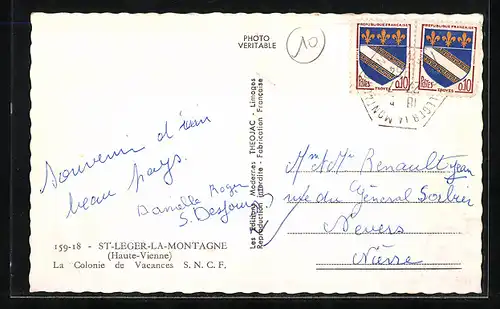 PHOTO
VERITABLE
10
REPUBLIQUE FRANÇAISE
REPUBLIQUE FRANÇAISE
POSTES 0,10
POSTES 0,10
TROYES
TROYES
LEGER LA MONT
Souvenir d'un
beau pays.
Danielle Roger
S. Desjours
Les Editions Modernes THEOJAC - Limoges
Reproduction interdite - Fabrication Française
Mr Mme Renault Jean
rue du Général Sorbier
Nevers
Nièvre
159-18 - ST-LEGER-LA-MONTAGNE
(Haute-Vienne)
La Colonie de Vacances S. N. C. F.